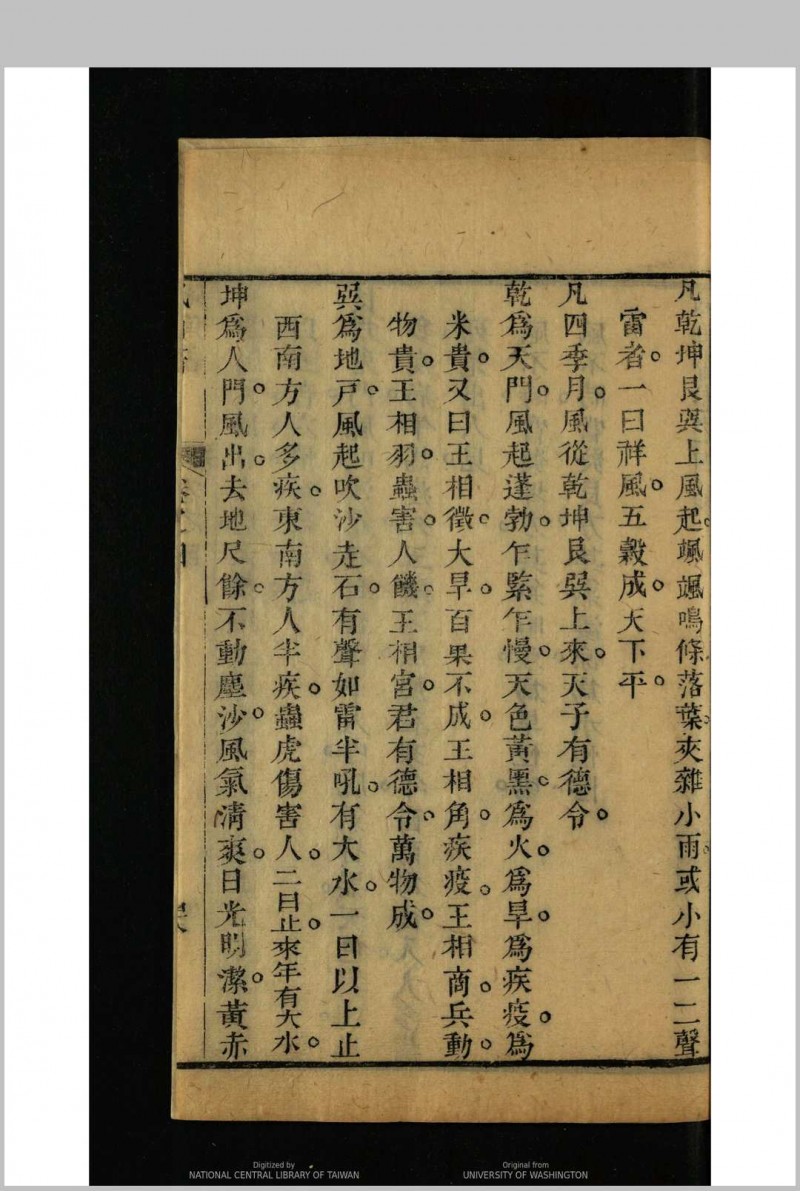 凡乾坤艮巽上風起。颯颯鳴條落葉。夾雜小雨。或小有一二聲
雷者。一曰祥風。五穀成。天下平。
凡四季月。風從乾坤艮巽上來。天子有德令。
乾爲天門。風起蓬勃。乍緊乍慢。天色黃黑。爲火。爲旱。爲疾疫。爲
米貴。又曰王相徵。大旱。百果不成。王相角。疾疫。王相商。兵動。
物貴。王相羽。蟲害。人饑。王相宮。君有德令。萬物成。
巽爲地戸。風起吹沙走石。有聲如雷半吼。有大水。一日以上止
西南方人多疾。東南方人半疾。蟲虎傷害人。二日止。來年有大水。
坤爲人門。風出。去地尺餘。不動塵沙。風氣清爽。日光明潔。黃赤
Digitized by
NATIONAL CENTRAL LIBRARY OF TAIWAN
Original from
UNIVERSITY OF WASHINGTON